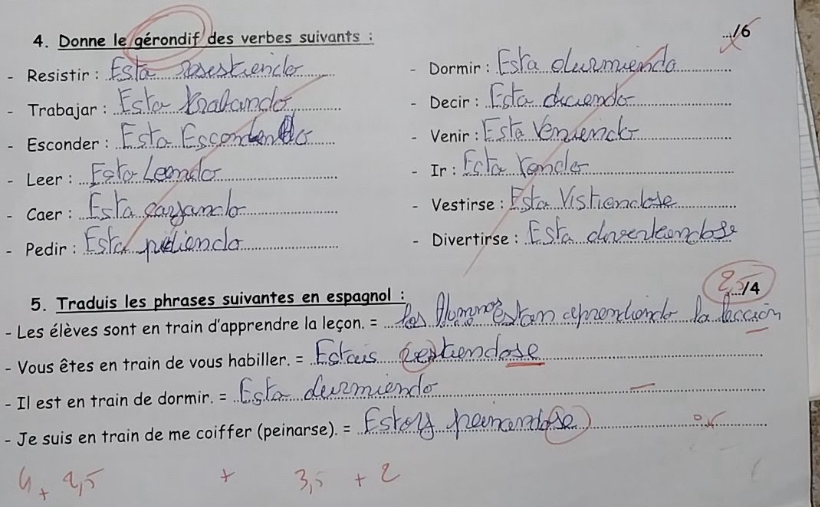 4. Donne le gérondif des verbes suivants : .../6
- Resistir : Esta resestiendo - Dormir : Esta durmiendo
- Trabajar : Esta trabando - Decir : Esta diciendo
- Esconder : Esta Escondendo - Venir : Esta Veniendo
- Leer : Esta Leendo - Ir : Esta Yendo
- Caer : Esta cayando - Vestirse : Esta Vistiendose
- Pedir : Esta pidiendo - Divertirse : Esta
5. Traduis les phrases suivantes en espagnol : 2,5/4
- Les élèves sont en train d'apprendre la leçon. = los Alumnos estan aprendiendo la leccion
- Vous êtes en train de vous habiller. = Estais
- Il est en train de dormir. = Esta durmiendo
- Je suis en train de me coiffer (peinarse). = Estoy peinandose
4 + 2,5 + 3,5 + 2